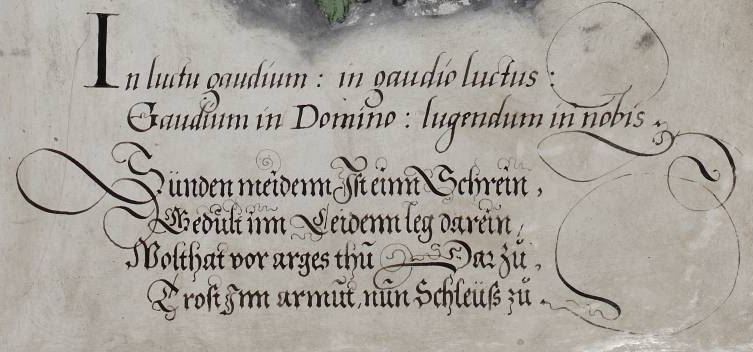 In luctu gaudium : in gaudio luctus :
Gaudium in Domino : lugendum in nobis
Sünden meidenn Ist einn Schrein,
Gedult inn Leidenn leg darein,
Wolthat vor arges thü Dar zü,
Trost Inn armüt, nün Schleüß zü.